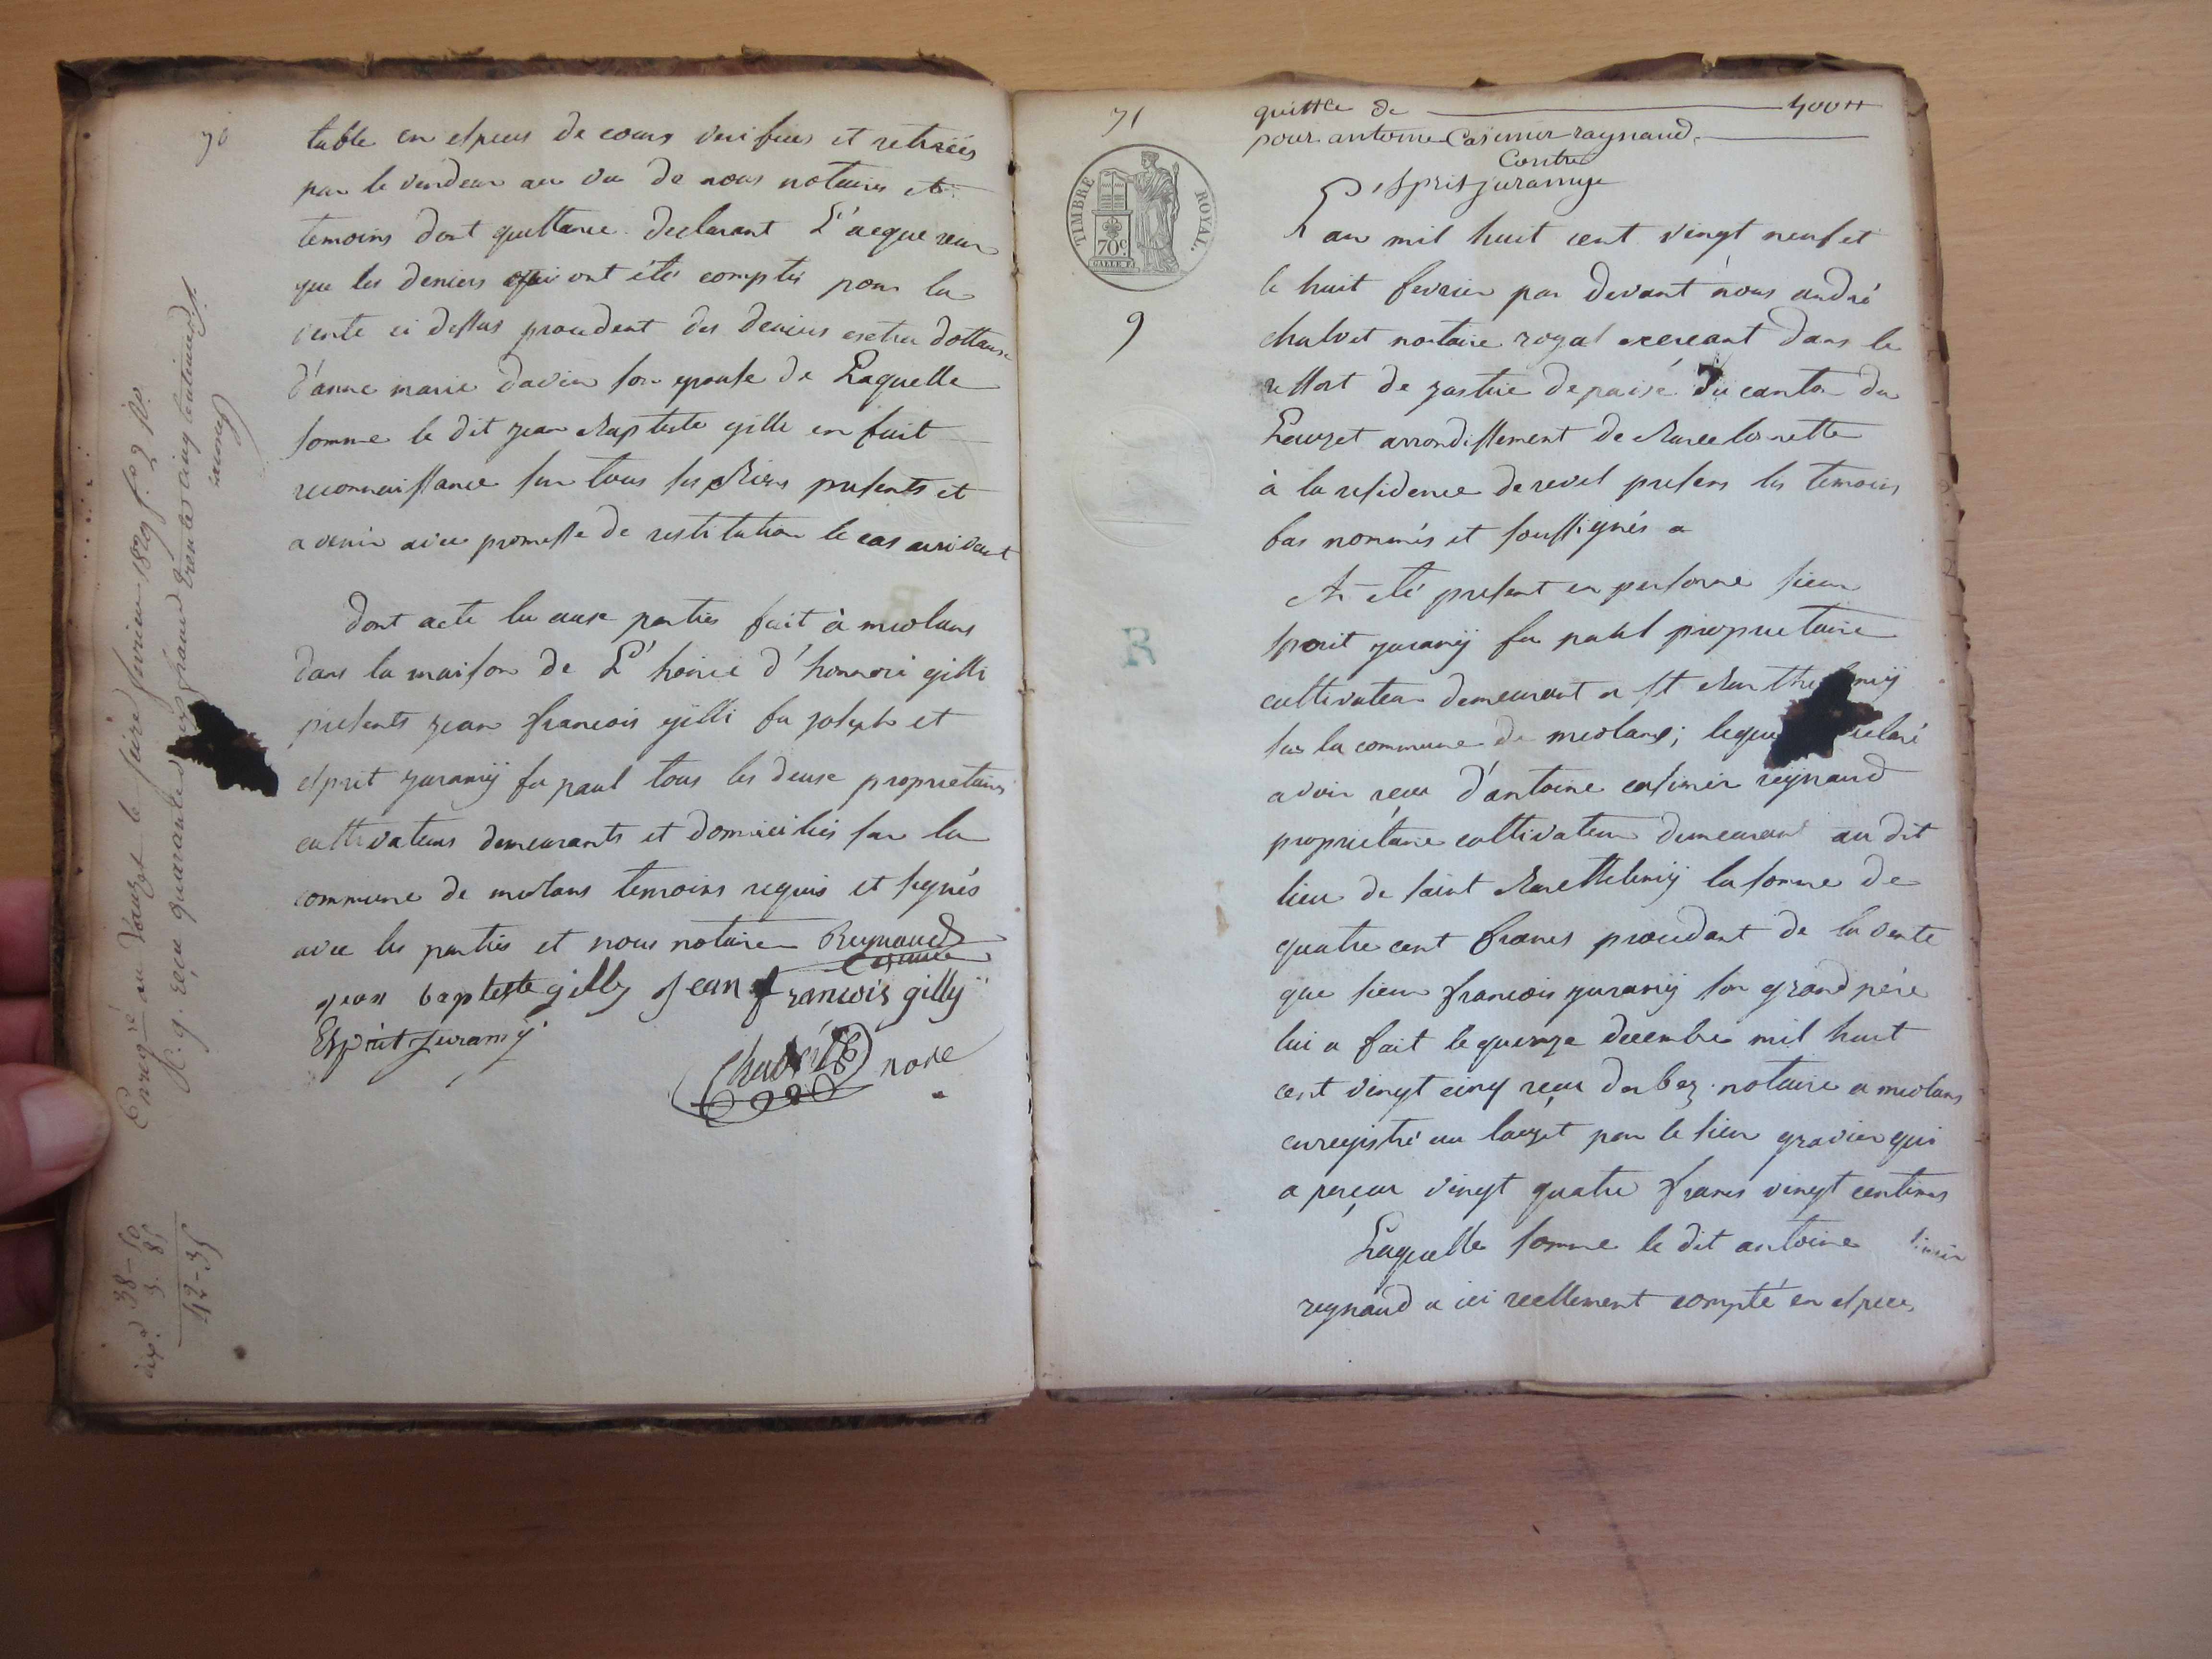 70
table en especes de cours verifiées et retirées
par le vendeur au vu de nous notaires et
temoins dont quittance. declarant L'acquereur
que les deniers qui ont été comptés pour la
vente ci dessus procedent des deniers extra dottause
d'anne marie davin son epouse de Laquelle
somme le dit jean Baptiste gille en fait
reconnaissance sur tous ses Biens presents et
a venir avec promesse de restitution le cas arrivant
dont acte lu aux parties fait à meolans
dans la maison de L' hoirie d'honnoré gilli
presents jean francois gilli fu joseph et
esprit juramÿ fu paul tous les deux proprietaires
cultivateurs demeurants et domiciliés sur la
commune de meolans temoins requis et signés
avec les parties et nous notaire Reynaud
jean baptiste gilly jean francois gillÿ
Esprit Juramÿ
Chalvet nore
Enregré au Lauzet le seize fevrier 1829 f° 2 R°.
R. g. reçu quarante francs trente cinq centimes
38-50
3. 85
42-35
71
quittce de 400tt
pour antoine Casimir raynaud.
Contre
Esprit juramye
TIMBRE ROYAL.
70c
9
R
L'an mil huit cent vingt neuf et
le huit fevrier par devant nous andré
chalvet notaire royal exercant dans le
ressort de justice de paix du canton du
Lauzet arrondissement de Barcelonnette
à la residence de revel presens les temoins
bas nommés et soussignés a
A été present en personne sieur
sprit juramÿ fu paul proprietaire
cultivateur demeurant a St Barthelemÿ
sur la commune de meolans; lequel declaré
avoir reçu d'antoine casimir reÿnaud
proprietaire cultivateur demeurant au dit
lieu de saint Barthelemÿ la somme de
quatre cent francs procedant de la vente
que sieur francois juramÿ son grand pére
lui a fait le quinze decembre mil huit
cent vingt cinq reçu derbez notaire a meolans
enregistré au lauzet par le sieur gravier qui
a perçeu vingt quatre francs vingt centimes
Laquelle somme le dit antoine simir
reynaud a ici reellement compté en especes